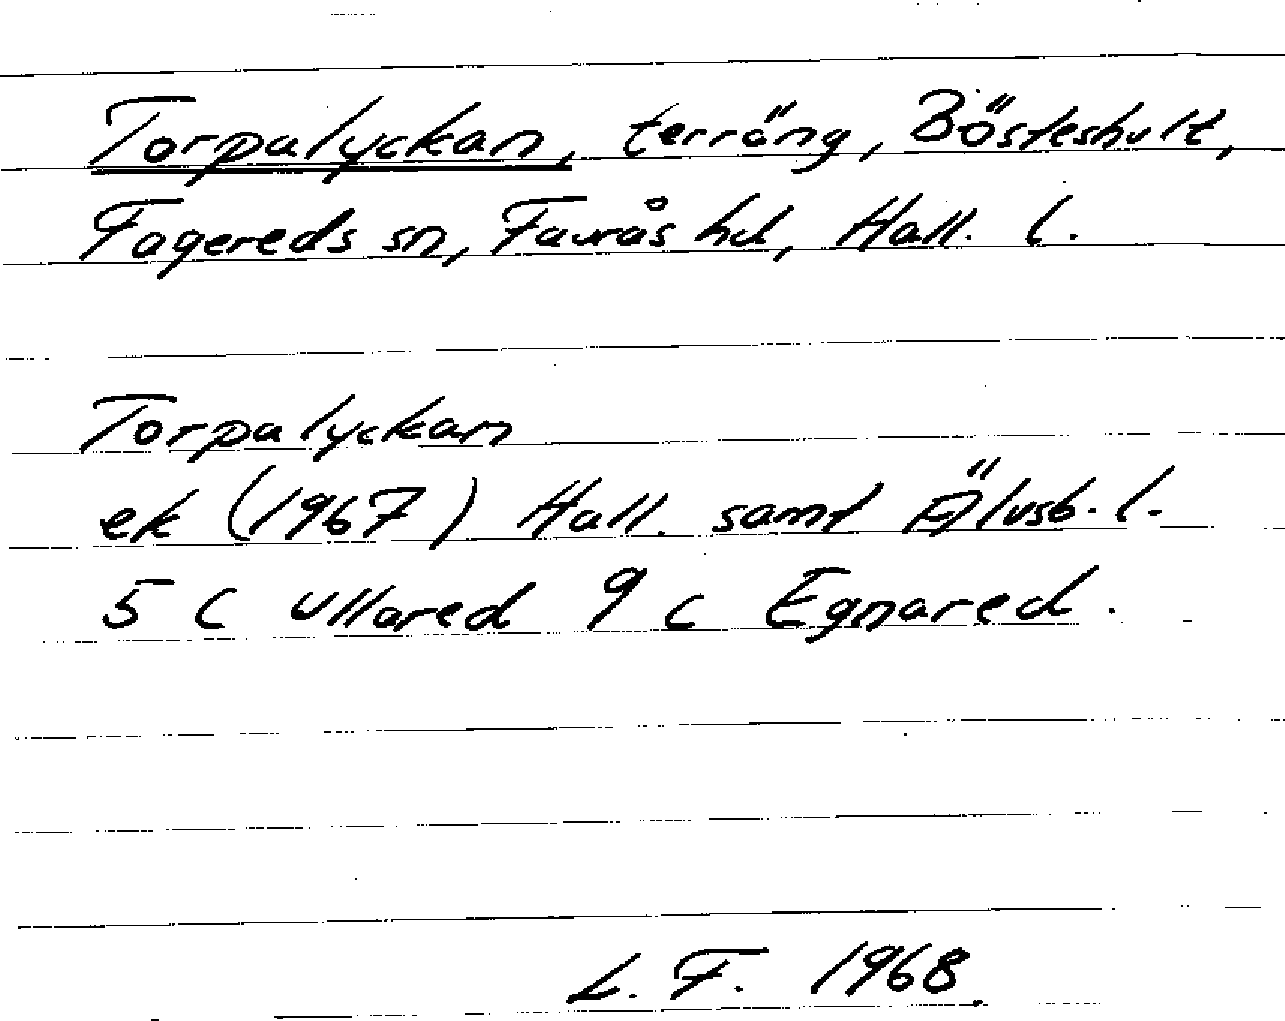 Torpalyckan, terräng, Bösteshult,
Fagereds sn, Faurås hd, Hall. l.
Torpalyckan
ek (1967) Hall. samt Älvsb. l.
5 C Ullared 9 c Egnared.
L. F. 1968.